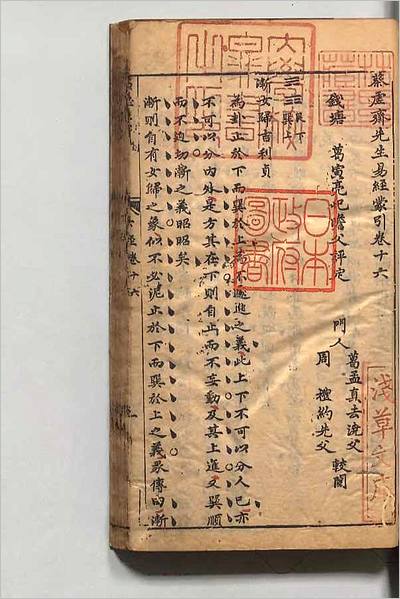 蔡虛齋先生易經蒙引卷十六
錢塘 葛寅亮屺瞻父評定
門人 葛孟真去浼父
周 禋約先父 較閱
艮下
巽上
漸女歸吉利貞
為卦止於下而巽於上為不遽進之義此上下不可以分人已亦
不可以分內外是方其在下則自止而不妄動及其上進又巽順
而不迫切漸之義昭昭矣
漸則自有女歸之象似不必泥止於下而巽於上之義彖傳曰漸
日本
政府
圖書
淺草文庫
卷十六